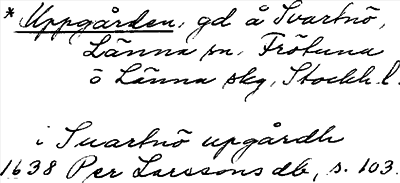 * Uppgården, gd å Svartnö,
Länna sn, Frötuna
o Länna skg, Stockh.l.
i Suartnö upgårdh
1638 Per Larssons db, s. 103.